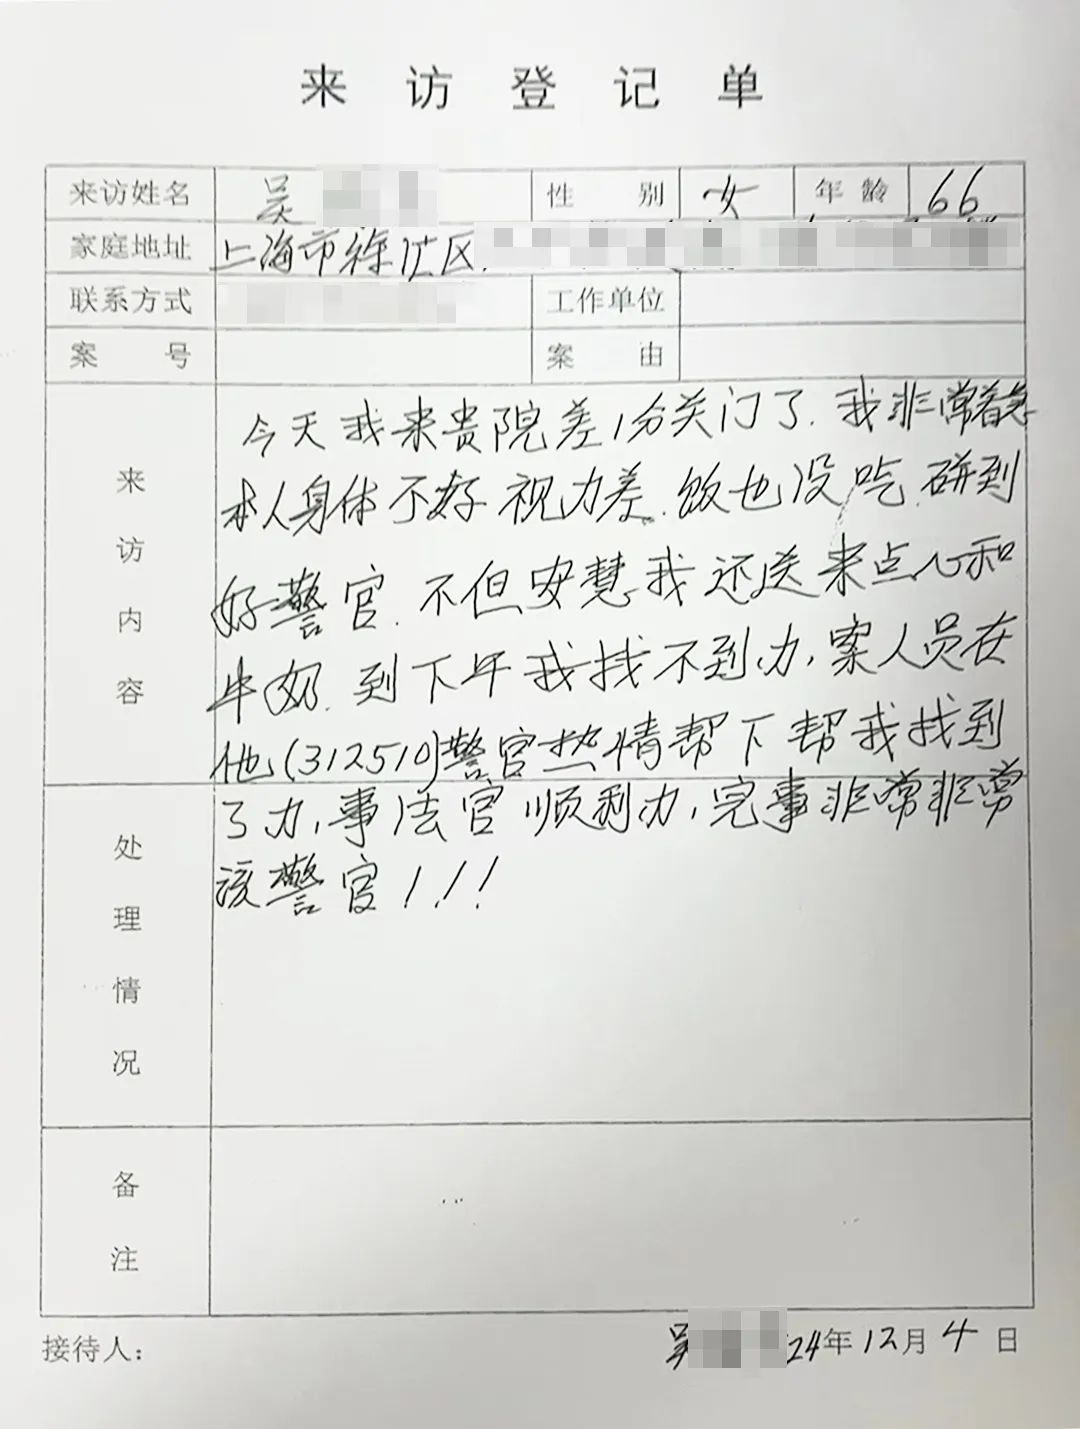 来访登记单
来访姓名 吴 性别 女 年龄 66
家庭地址 上海市徐汇区
联系方式 工作单位
案号 案由
来访内容
今天我来贵院差1分关门了.我非常着急
本人身体不好视力差.饭也没吃.碰到
好警官.不但安慧我还送来点心和
牛奶.到下午我找不到办,案人员在
他(312510)警官热情帮下帮我找到
了办,事法官顺利办,完事非常非常
该警官!!!
处理情况
备注
接待人: 吴 24年12月4日